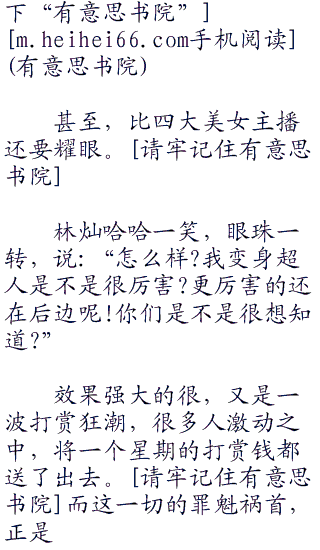 下“有意思书院”]
[m.heihei66.com手机阅读]
(有意思书院)
甚至，比四大美女主播
还要耀眼。[请牢记住有意思
书院]
林灿哈哈一笑，眼珠一
转，说：“怎么样?我变身超
人是不是很厉害?更厉害的还
在后边呢!你们是不是很想知
道?”
效果强大的很，又是一
波打赏狂潮，很多人激动之
中，将一个星期的打赏钱都
送了出去。[请牢记住有意思
书院]而这一切的罪魁祸首，
正是